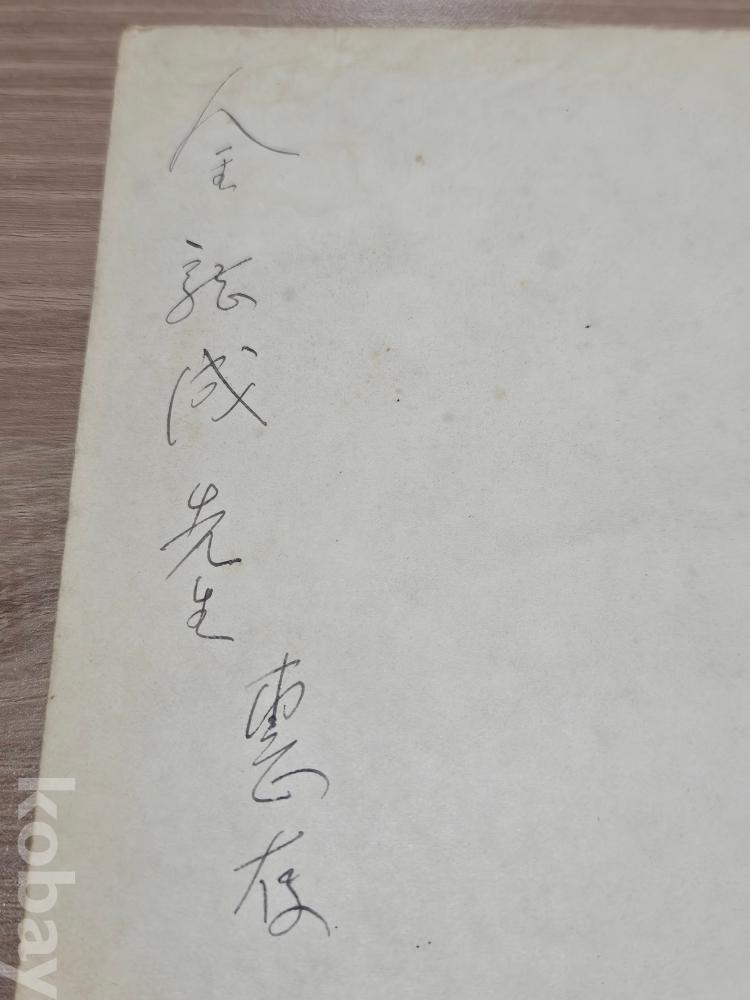 金龍成
先生
惠存
kobay